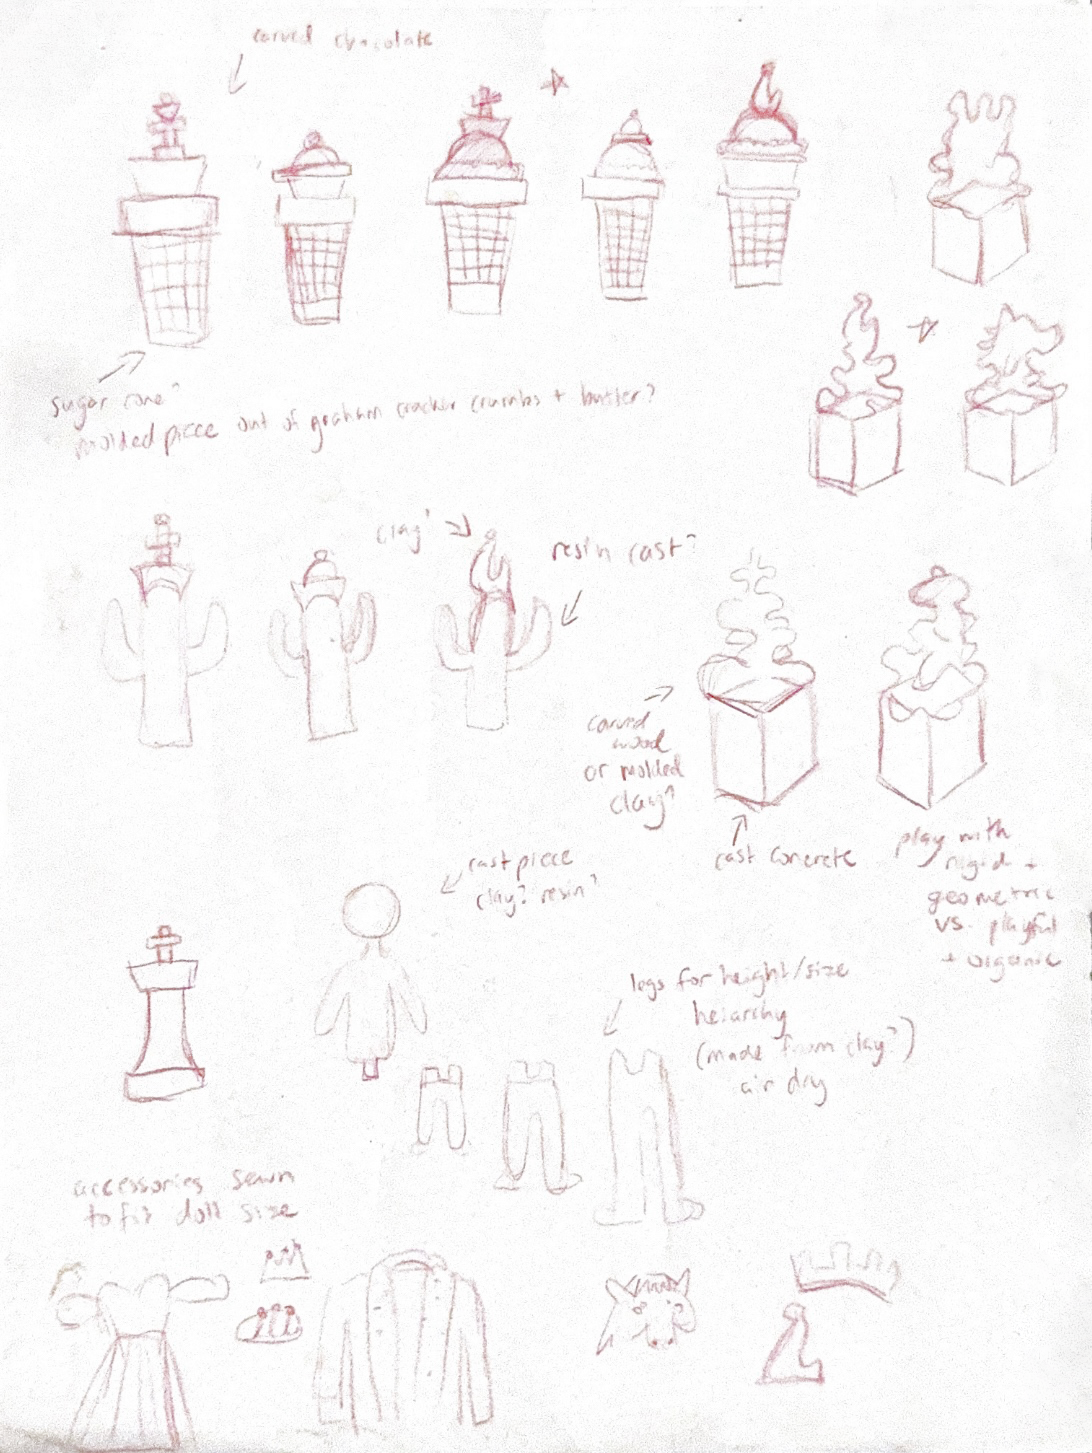 carved chocolate
sugar cone?
molded piece out of graham cracker crumbs + butter?
clay?
resin cast?
carved
wood
or molded
clay?
cast concrete
play with
rigid +
geometric
vs. playful
+ organic
cast piece
clay? resin?
legs for height/size
heiarchy
(made from clay?)
air dry
accessories sewn
to fit doll size